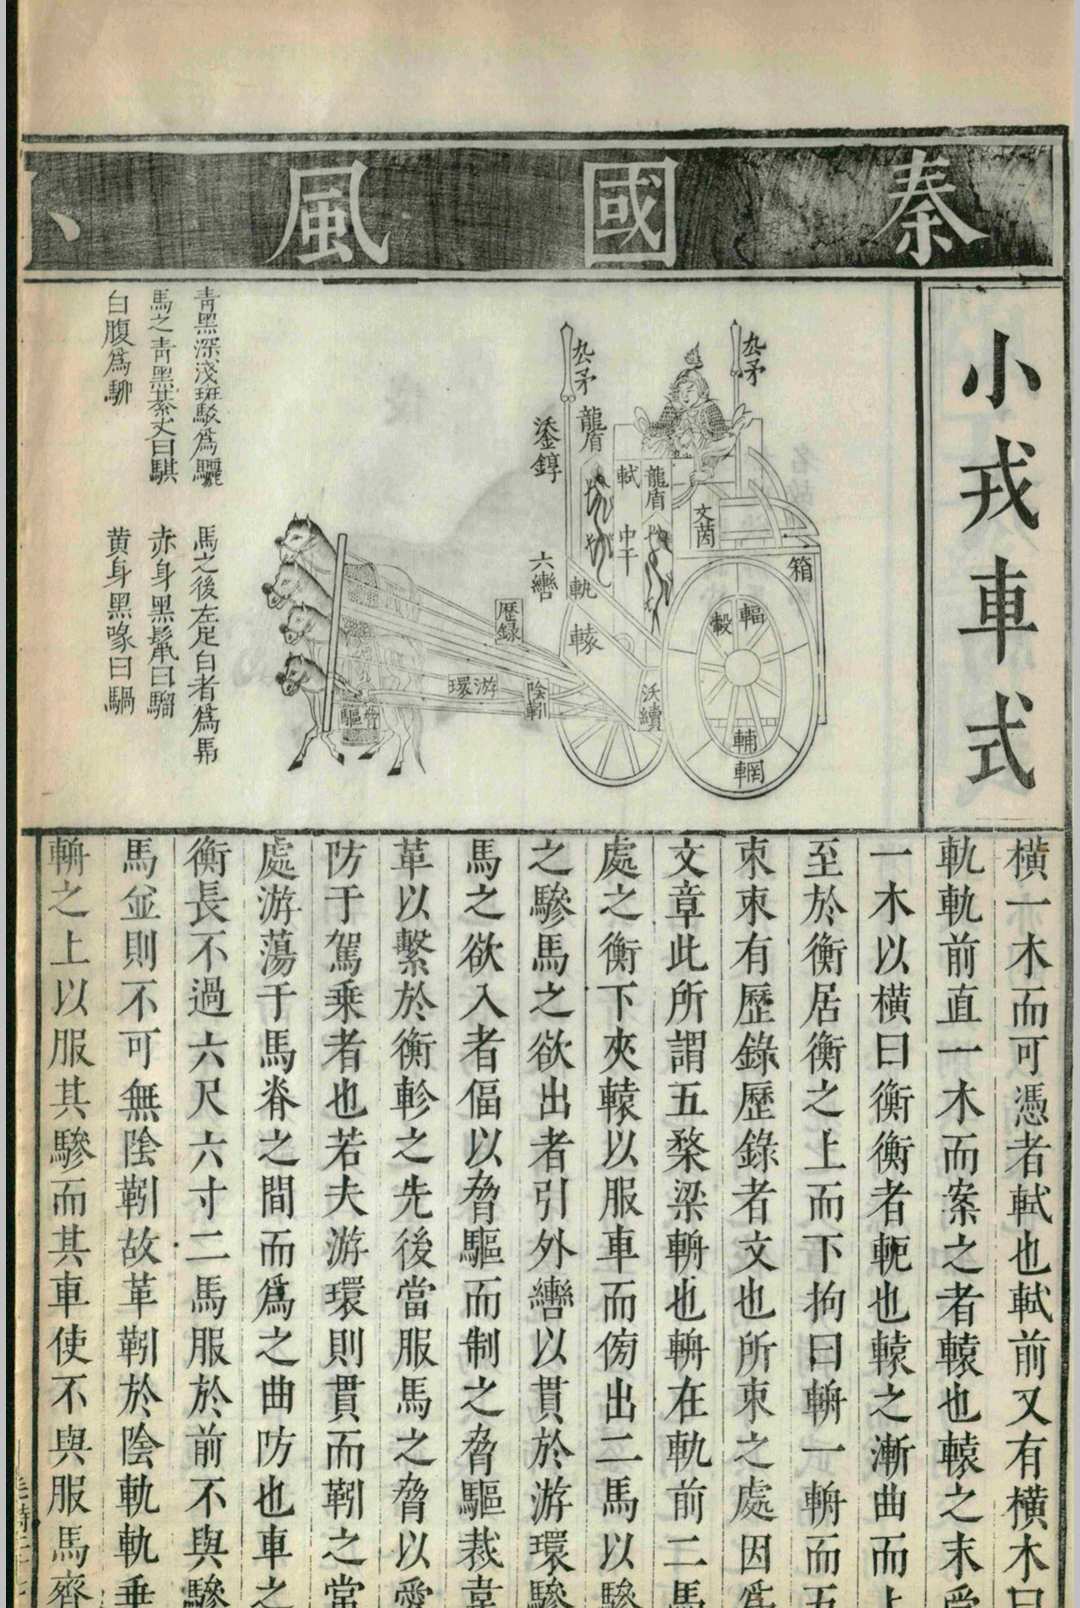 秦國風小
小戎車式
厹矛
厹矛
龍盾
鋈錞
軾
龍盾
中干
文茵
箱
六轡
軌
轅
歷録
游環
陰靷
沃續
脅驅
轂
輻
輔
輞
青黑深淺斑駁為驪
馬之青黑綦文曰騏
白腹為騵
馬之後左足白者為馵
赤身黑鬣曰騮
黄身黑喙曰騧
橫一木而可憑者軾也軾前又有橫木曰
軌軌前直一木而案之者轅也轅之末受
一木以橫曰衡衡者軛也轅之漸曲而上
至於衡居衡之上而下拘曰輈一輈而五
束束有歷錄歷錄者文也所束之處因爲
文章此所謂五楘梁輈也輈在軌前二馬
處之衡下夾轅以服車而傍出二馬以驂
之驂馬之欲出者引外轡以貫於游環驂
馬之欲入者偪以脅驅而制之脅驅裁韋
革以繫於衡軫之先後當服馬之脅以愛
防于駕乗者也若夫游環則貫而靷之當
處游蕩于馬脊之間而爲之曲防也車之
衡長不過六尺六寸二馬服於前不與驂
馬並則不可無陰靷故革靷於陰軌軌垂
輈之上以服其驂而其車使不與服馬齊